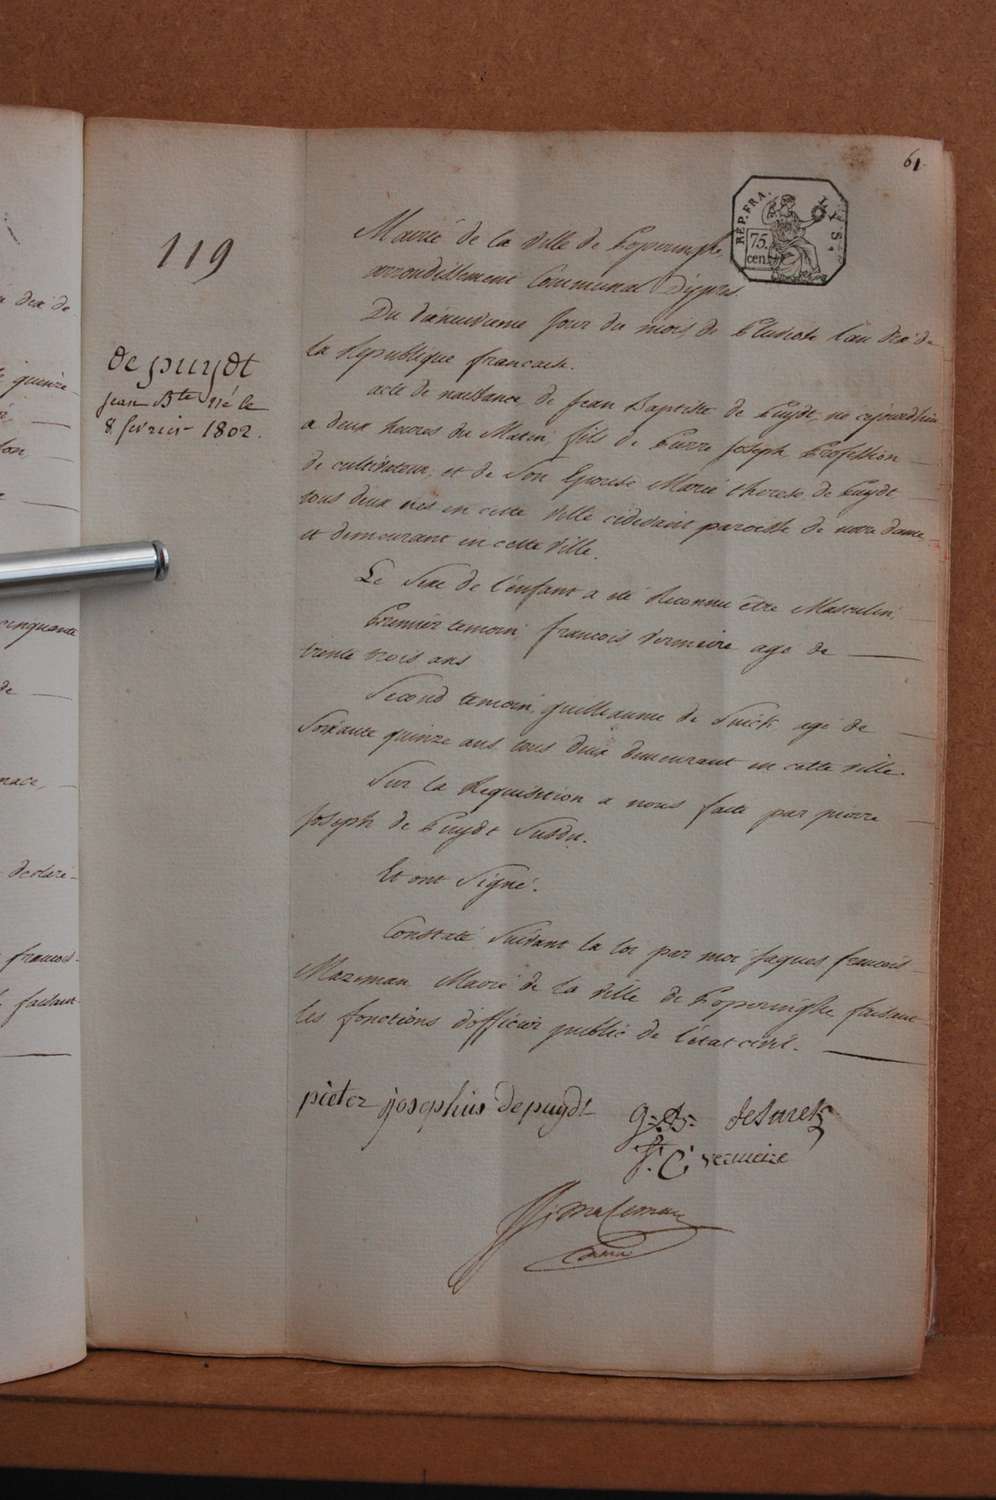 61
REP. FRA.
75.
cen.
119
Mairie de la ville de Poperinghe,
arrondissement Communal D'ypres.
Du dixneuvieme Jour du mois de Pluviose l'an dix de
la Republique francaise.
de puydt
jean Bte né le
8 fevrier 1802.
acte de naissance de Jean Baptiste de Puydt, né cejourdhui
a deux heures du Matin, fils de Pierre Joseph Profession
de cultivateur, et de Son Epouse Marie therese de Puydt
tous deux nés en cette Ville cidevant paroisse de notre dame
et demeurant en cette Ville.
Le Sexe de l'enfant a été Reconnu être Masculin,
Premier temoin, francois Vermeire age de
trente trois ans
Second temoin, guilleaume de Surck age de
Soixante quinze ans, tous deux demeurant en cette ville.
Sur la Requisition a nous faite par pierre
Joseph de Puydt Susdu.
Et ont Signé.
Constaté Suivant la loi par moi Jaques francois
Mazeman Maire de la Ville de Poperinghe faisant
les fonctions d'officier public de l'état civil.
pieter josephus depuydt
deSurck
f. C. vermeire
dix de
quinze
cinquante
de
declaré
francois
faisant